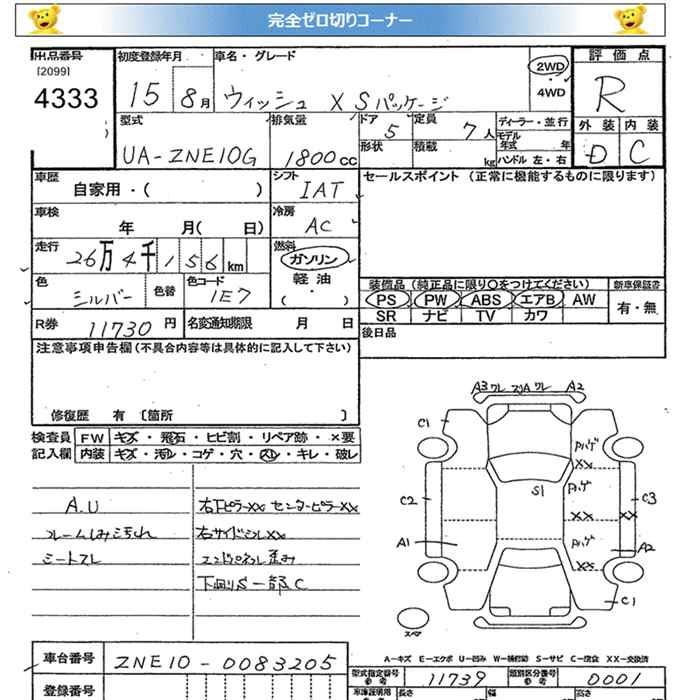 完全ゼロ切りコーナー
出品番号 初度登録年月 車名・グレード 2WD ・ 4WD 評価点
[2099] 4333 15 8月 ウィッシュ X Sパッケージ R
型式 排気量 ドア 5 定員 7人 ディーラー・並行 外装 内装
UA-ZNE10G 1800cc 形状 積載 kg モデル年式 年 D C
ハンドル 左・右
車歴 自家用・( ) シフト IAT セールスポイント(正常に機能するものに限ります)
車検 年 月( 日) 冷房 AC
走行 26万4千156km 燃料 ガソリン 軽油 ( ・ )
色 シルバー 色替 色コード 1E7
装備品(純正品に限り○をつけてください) 新車保証書
PS PW ABS エアB AW 有・無
SR ナビ TV カワ
R券 11730円 名変通知期限 月 日 後日品
注意事項申告欄(不具合内容等は具体的に記入して下さい)
修復歴 有 [箇所 ]
検査員 FW キズ・飛石・ヒビ割・リペア跡・×要
記入欄 内装 キズ・汚レ・コゲ・穴・スレ・キレ・破レ
A.U 右FピラーXX センターピラーXX
フレームしみ汚れ 右サイドシルXX
シートスレ エンドパネル歪み
下回りS一部C
A3ワレ スリA ワレ A2
C1 Pハゲ XX
S1 Pハゲ
C2 XX XX C3
A1 Pハゲ A2
XX
C1
スペア
A-キズ E-エクボ U-凹み W-補修跡 S-サビ C-腐食 XX-交換済
車台番号 ZNE10-0083205 型式指定番号 参考 11739 類別区分番号 参考 0001
登録番号 車庫証明用 長さ 幅 高さ